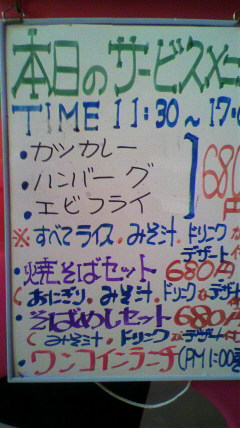 本日のサービスメニ
TIME 11:30～17:0
・カツカレー
・ハンバーグ
・エビフライ
680円
※すべてライス・みそ汁・ドリンク か
デザート
・焼そばセット 680円
(おにぎり・みそ汁・ドリンク か デザート
・そばめしセット 680円
(みそ汁・ドリンク か デザート
・ワンコインランチ(PM 1:00